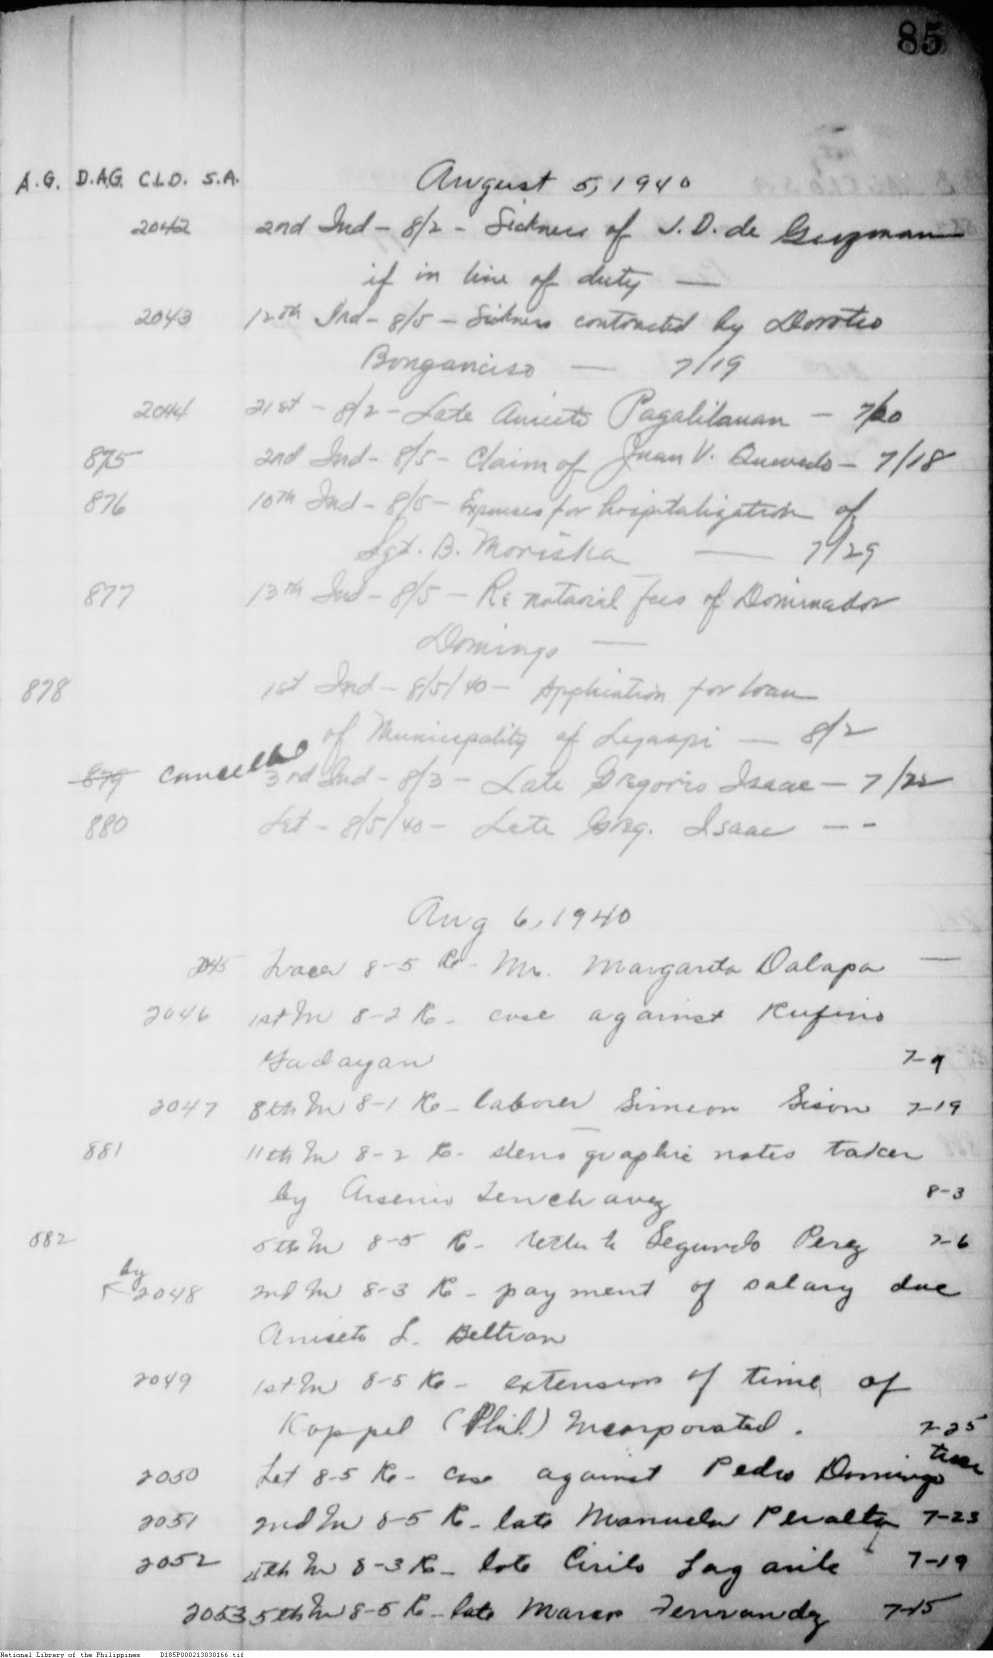 85
A.G. D.A.G. C.L.D. S.A. August 5, 1940
2042 2nd Ind - 8/2 - Sickness of J. D. de Guzman
if in line of duty —
2043 12th Ind - 8/5 - Sickness contracted by Doroteo
Bonganciso — 7/19
2044 21st - 8/2 - Late Aniceto Pagalilauan - 7/20
875 2nd Ind - 8/5 - Claim of Juan V. Quevedo - 7/18
876 10th Ind - 8/5 - Expenses for hospitalization of
Sgt. B. Moriska — 7/29
877 13th Ind - 8/5 - Re notarial fees of Dominador
Domingo —
878 1st Ind - 8/5/40 - Application for loan
of Municipality of Legaspi — 8/2
879 cancelled 3rd Ind - 8/3 - Late Gregorio Isaac - 7/22
880 Let - 8/5/40 - Late Greg. Isaac - -
Aug 6, 1940
2045 Tracer 8-5 Re - Mr. Margarito Dalapa —
2046 1st In 8-2 Re - case against Rufino
Gadayan 7-9
2047 8th In 8-1 Re - laborer Simeon Sison 7-19
881 11th In 8-2 Re - stenographic notes taken
by Arsenio Tenchavez 8-3
882 5th In 8-5 Re - letter Segundo Perez 7-6
by
2048 2nd In 8-3 Re - payment of salary due
Aniseto L. Beltran
2049 1st In 8-5 Re - extension of time of
Koppel (Phil) Incorporated. 7-25
2050 Let 8-5 Re - case against Pedro Domingo
2051 2nd In 8-5 Re - late Manuela Peralta 7-23
2052 5th In 8-3 Re - late Cirilo 7-19
2053 5th In 8-5 Re - late Marcos Fernandez 7-15
National Library of the Philippines D185P000213030166.tif